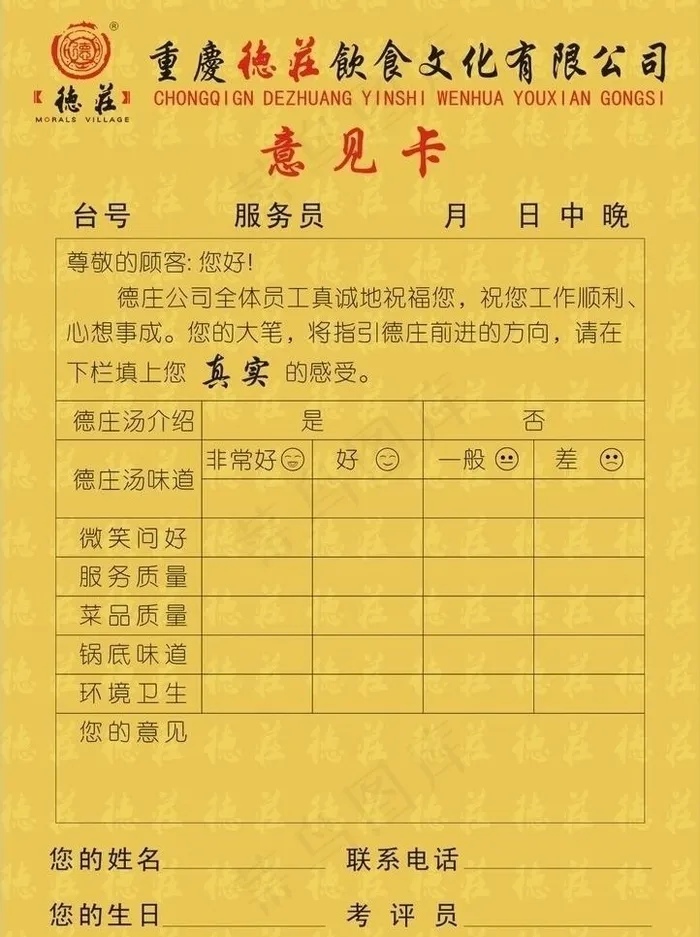 ®
德莊
MORALS VILLAGE
重慶德莊飲食文化有限公司
CHONGQIGN DEZHUANG YINSHI WENHUA YOUXIAN GONGSI
意见卡
台号 服务员 月 日 中 晚
尊敬的顾客: 您好!
德庄公司全体员工真诚地祝福您，祝您工作顺利、
心想事成。您的大笔，将指引德庄前进的方向，请在
下栏填上您 真实 的感受。
德庄汤介绍 是 否
德庄汤味道 非常好 好 一般 差
微笑问好
服务质量
菜品质量
锅底味道
环境卫生
您的意见
您的姓名 联系电话
您的生日 考评员